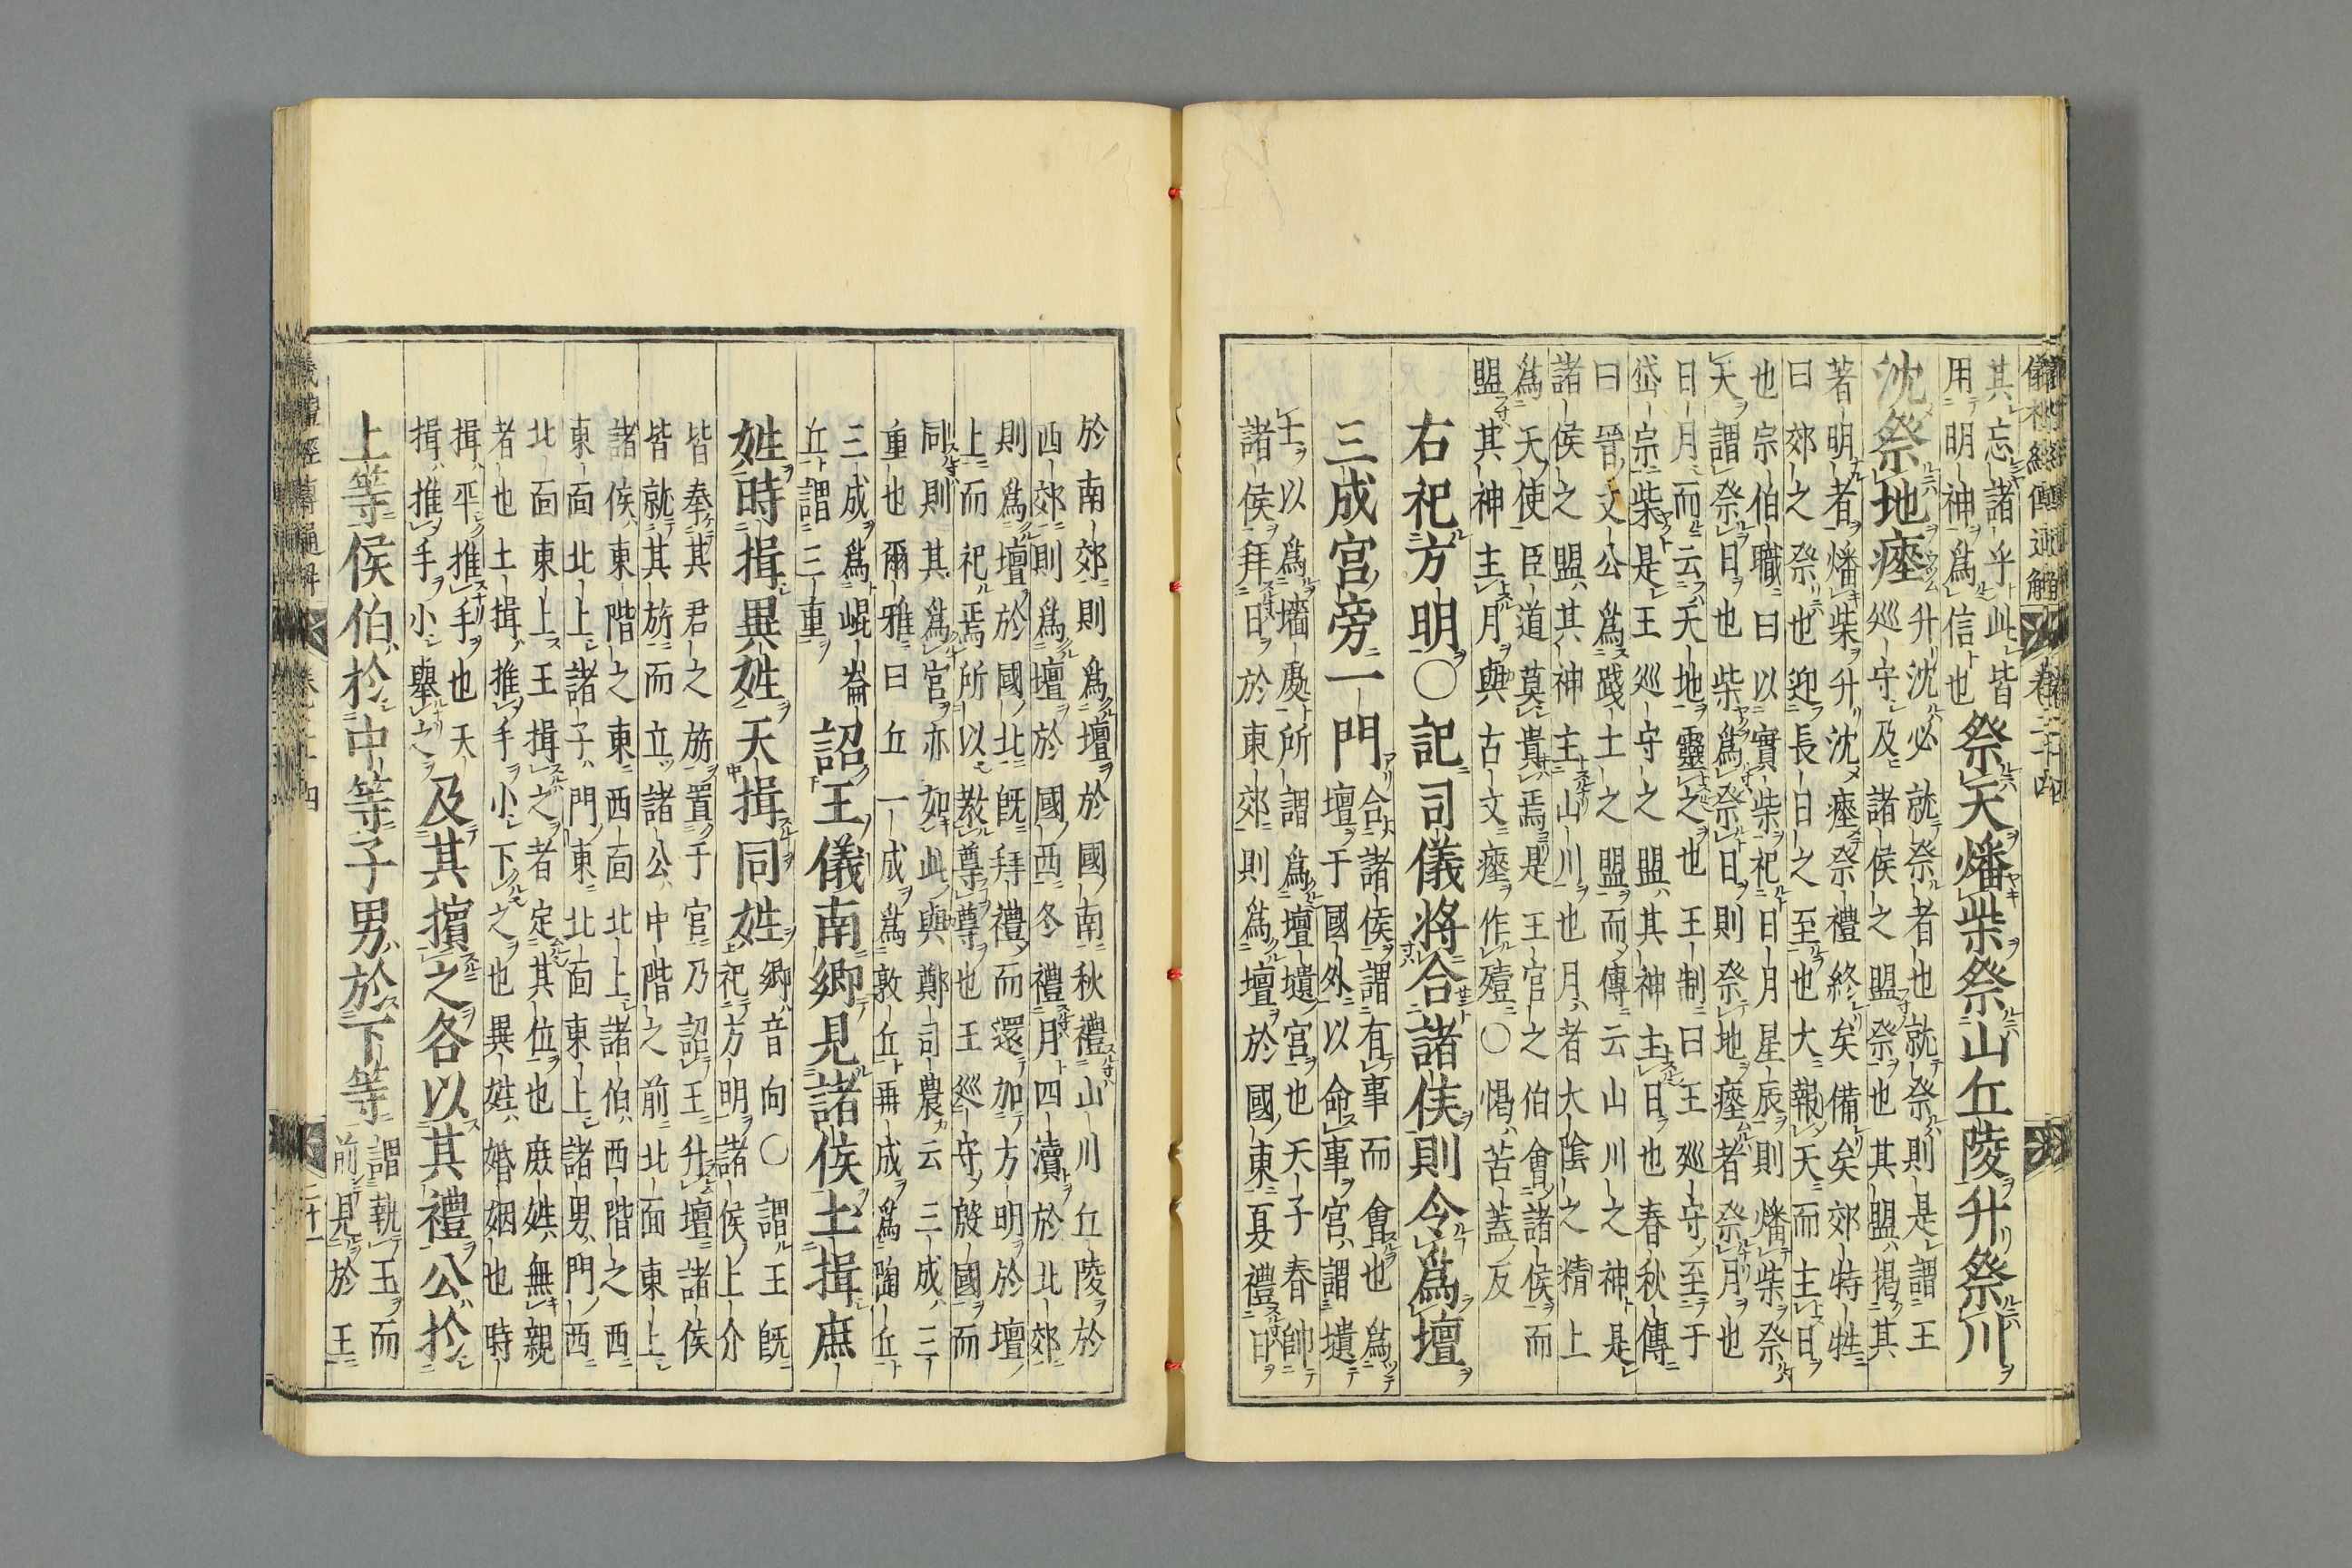 儀禮經傳通解 卷二十四
其忘諸乎此皆
用明神爲信也
祭天燔柴祭山丘陵升祭川
沈祭地瘞
升沈必就祭者也就祭則是謂王
巡守及諸侯之盟祭也其盟揭其
著明者燔柴升沈瘞祭禮終矣備矣郊特牲
曰郊之祭也迎長日之至也大報天而主日
也宗伯職曰以實柴祀日月星辰則燔柴祭
天謂祭日也柴爲祭日則祭地瘞者祭月也
日月而云天地靈之也王制曰王巡守至于
岱宗柴是王巡守之盟其神主日也春秋傳
曰晉文公爲踐土之盟而傳云山川之神是
諸侯之盟其神主山川也月者太陰之精上
爲天使臣道莫貴焉是王官之伯會諸侯而
盟其神主月與古文瘞作殪○愒苦蓋反
右祀方明○記司儀將合諸侯則令爲壇
三成宮旁一門
合諸侯謂有事而會也爲
壇于國外以命事宮謂壝
土以爲墻處所謂爲壇壝宮也天子春帥
諸侯拜日於東郊則爲壇於國東夏禮日
於南郊則爲壇於國南秋禮山川丘陵於
西郊則爲壇於國西冬禮月四瀆於北郊
則爲壇於國北既拜禮而還加方明於壇
上而祀焉所以教尊尊也王巡守殷國而
同則其爲宮亦如此與鄭司農云三成三
重也爾雅曰丘一成爲敦丘再成爲陶丘
三成爲崐崘
丘謂三重
詔王儀南鄉見諸侯土揖庶
姓時揖異姓天揖同姓
鄉音向○謂王既
祀方明諸侯上介
皆奉其君之旂置于宮乃詔王升壇諸侯
皆就其旂而立諸公中階之前北面東上
諸侯東階之東西面北上諸伯西階之西
東面北上諸子門東北面東上諸男門西
北面東上王揖之者定其位也庶姓無親
者也土揖推手小下之也異姓婚姻也時
揖平推手也天
揖推手小舉之
及其擯之各以其禮公於
上等侯伯於中等子男於下等
謂執玉而
前見於王
儀禮經傳通解 卷二十四 二十一